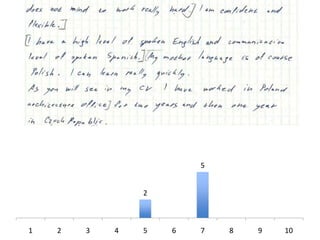 does not mind to work really hard] I am confident and
flexible.]
[I have a high level of spoken English and communication
level of spoken Spanish.] [My mother language is of course
Polish. I can learn really quickly.
As you will see in my CV I have worked in Poland
architecture office] for two years and then one year
in Czech Republic.
5
2
1 2 3 4 5 6 7 8 9 10